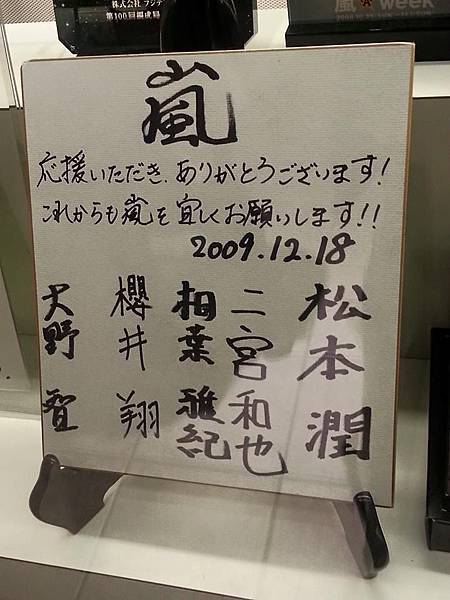 株式会社 フジテ
第100回編成局
嵐 week
嵐
応援いただき、ありがとうございます!
これからも嵐を宜しくお願いします!!
2009.12.18
松本 潤
二宮和也
相葉雅紀
櫻井 翔
大野 智